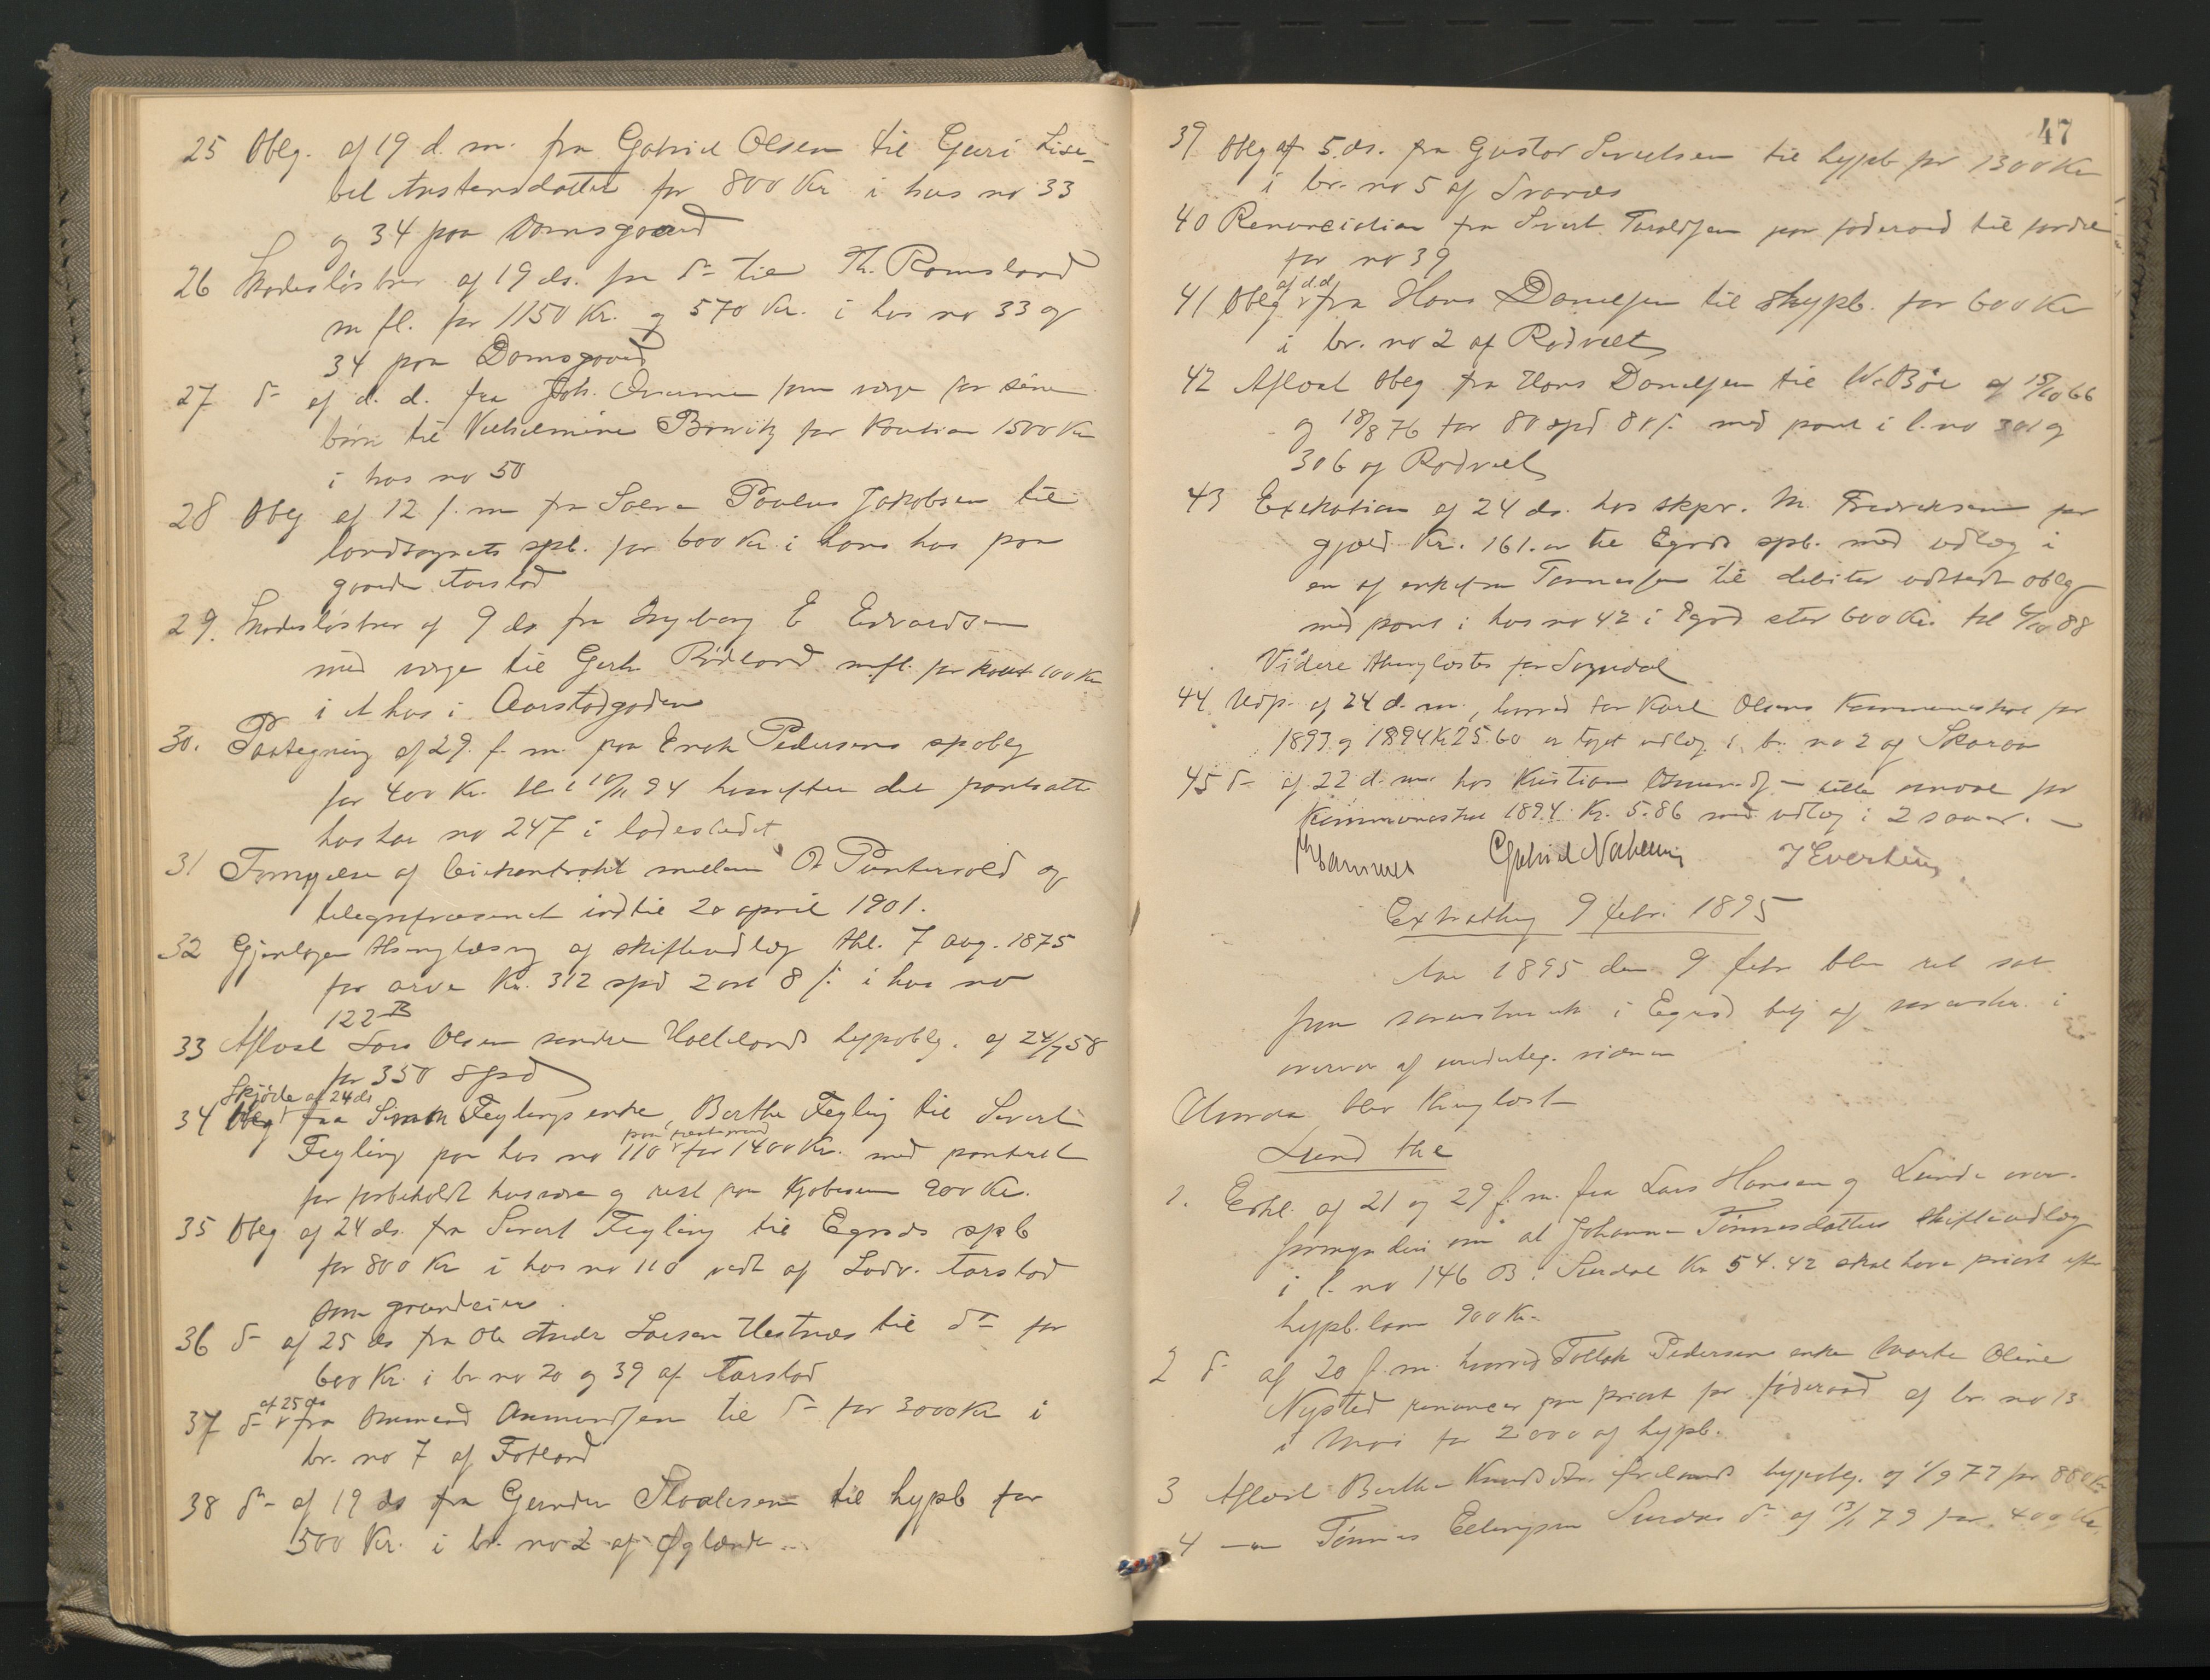 25 Oblg. af 19 d. m. fra Gabriel Olsen til Guri Lise-
bet Austensdatter for 800 Kr i hus no 33
og 34 paa Damsgaard
26 Skadesløsbrev af 19 ds. fra do til Th. Ramsland
m fl. for 1150 Kr. og 570 Kr. i hus no 33 og
34 paa Damsgaard
27 do af d. d. fra Joh. som verge for sine
børn til Vilhelmine for Kaution 1500 Kr
i hus no 50
28 Oblg af 12 f. m fra Paulus Jakobsen til
landsognets spb. for 600 Kr i hans hus paa
gaarden Aarstad
29. Skadesløsbrev af 9 ds fra Ingeborg E Edvardsen
med verge til Gerh. Rødland mfl. for 100 Kr
i et hus i Aarstadgaden
30. Paategning af 29. f. m. paa Enok Pedersens spoblg
for 400 Kr. thl 94 hvorefter det pantsatte
hus har no 247 i ladestedet
31 Fornyelse af leiekontrakt mellem O Puntervold og
telegrafvæsenet indtil 20 april 1901.
32 Gjentagen thinglæsning af skifteudlæg thl. 7 aug. 1875
for arve Kr. 312 spd 2 ort 8 s. i hus no
122 B
33 Aflæst Lars Olsen søndre Hællelands hypoblg. af 24/7 58
for 350 spd
Skjøde af 24 ds
34 fra Simon Feylings enke Berthe Feyling til Sivert
paa festegrund
Feyling paa hus no 110 for 1400 Kr. med panteret
for forbeholdt husvære og rest paa Kjøbesum 900 Kr.
35 Oblg af 24 ds. fra Sivert Feyling til Egrds spb
for 800 Kr i hus no 110 vedt. af Ludv. Aarstad
som grundeier.
36 do af 25 ds fra Ole Andr Larsen Hestnes til do for
600 Kr. i br no 20 og 39 af Aarstad
af 25 ds
37 do fra Ommund Ommundsen til do for 3000 Kr i
br. no 7 af Fotland
38 do af 19 ds fra Gunder til hypb for
500 Kr. i br. no 2 af Øglænd
47
39 Oblg af 5. ds. fra Gustav Sivertsen til hypb for 1300 Kr
i br. no 5 af Svanæs
40 Renunciation fra Sivert Taraldsen paa føderaad til fordel
for no 39
af d.d.
41 Oblg fra Hans Danielsen til hypb. for 600 Kr
i br. no 2 af Rødvelt
42 Aflæst oblg fra Hans Danielsen til W. Bøe af 15/10 66
og 18/8 76 for 80 spd 80 s. med pant i l. no 301 og
306 af Rødvelt
43 Exekution af 24 ds. hos skpr. M. Fredriksen for
gjæld Kr. 161. til Egrds spb. med udlæg i
en af enkefru Tønnessen til debitor udstedt oblg
med pant i hus no 42 i Egrd stor 600 Kr. thl 88
Videre thinglæstes for Sogndal
44 Udp. af 24 d. m., hvorved for Karl Olsens Kommuneskat for
1893 og 1894 Kr 25.60 er taget udlæg i br. no 2 af Skaraa
45 do af 22 d. m. hos Kristian for
Kommuneskat 1894. Kr. 5.86 med udlæg i 2 sauer. —
Gabriel J Evertsen
Extrathing 9 febr. 1895
Aar 1895 den 9 febr blev ret sat
som sorenskriver i Egrd af i
overvær af undertegn. vidner
blev thinglæst
Lund thl
1. Erkl. af 21 og 29 f. m. fra Lars Hansen og Lunds over-
formynderi om at Johanne Tønnesdatters skifteudlæg
i l. no 146 B i Surdal Kr 54.42 skal have priort efter
hypb. laan 900 Kr.
2 do af 20 f. m. hvorved Tollak Pedersens enke Marte Oline
Nysted renuncer paa priort for føderaad af br. no 13
i Moi for 2000 af hypb.
3 Aflæst Berthe Knudsdtr. hypoblg. af 1/9 77 for 880 Kr
4 — Tønnes Ellingsen Surdal do af 13/1 79 for 400 Kr.